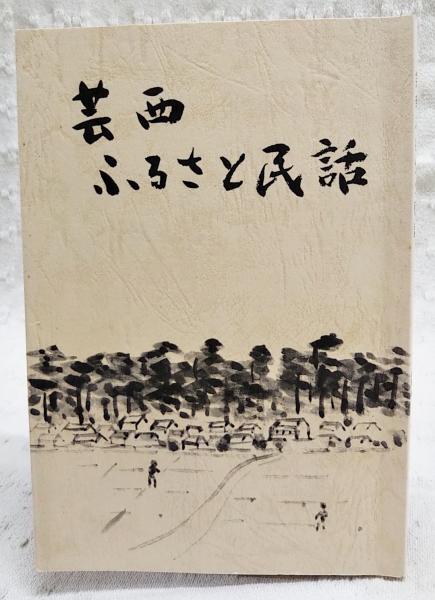 芸西
ふるさと民話